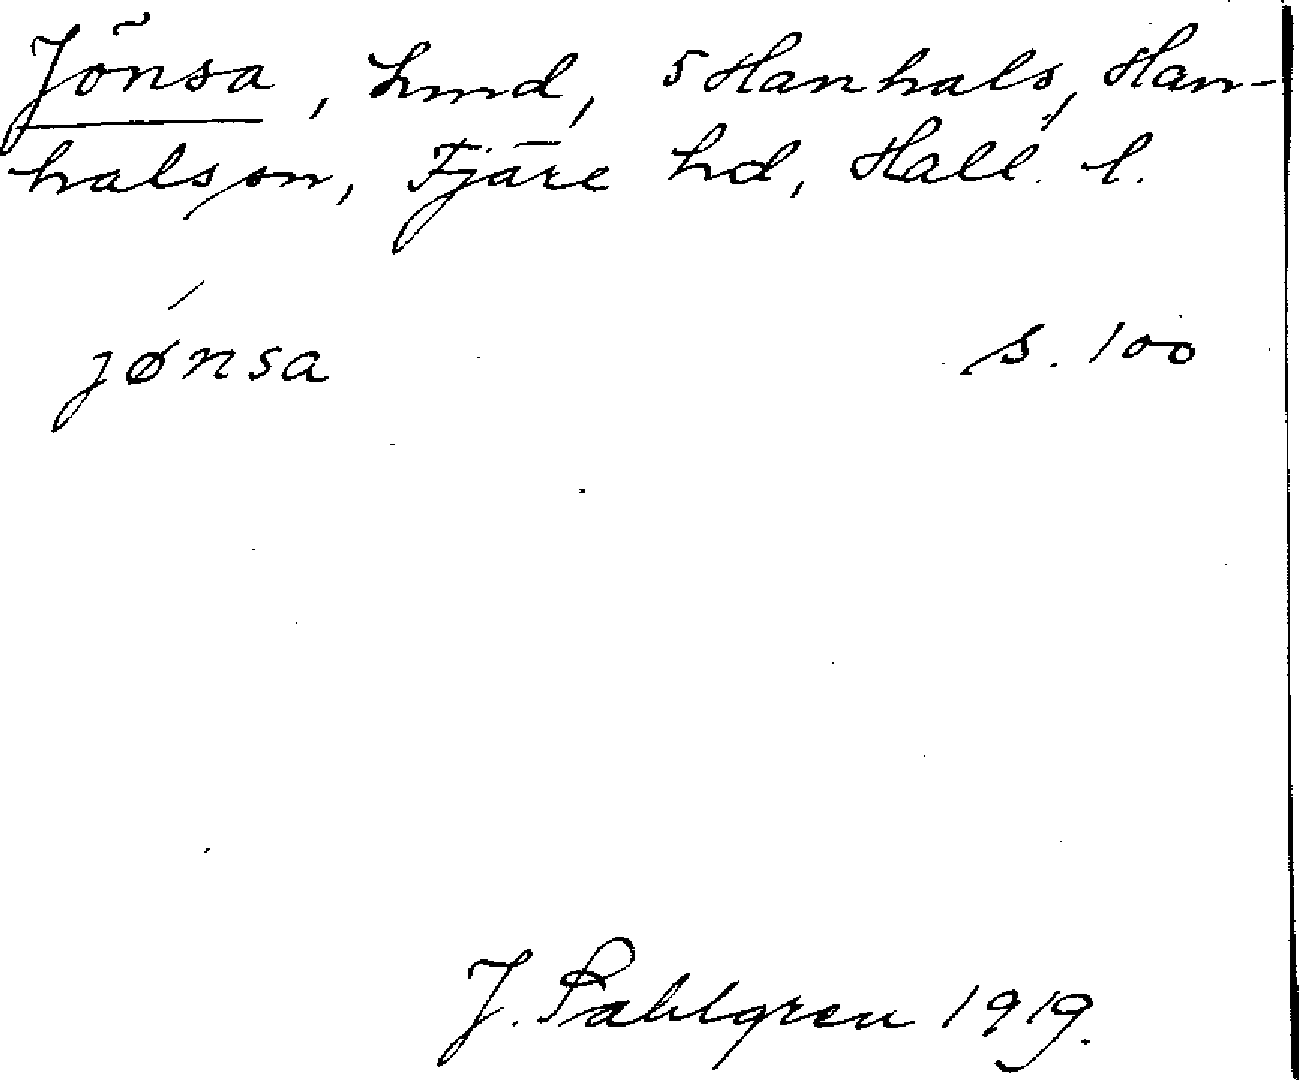 Jönsa, hmd, 5 Hanhals, Han-
halssn, Fjäre hd, Hall. l.
jønsa s. 100
J. Sahlgren 1919.